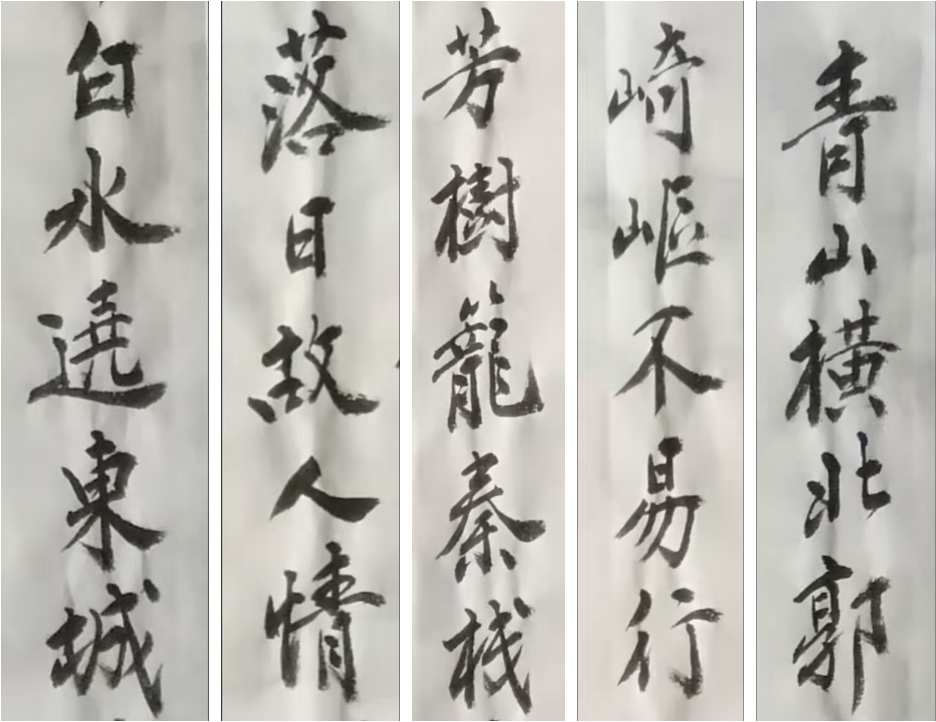 青山横北郭
崎嶇不易行
芳樹籠秦栈
落日故人情
白水遶東城